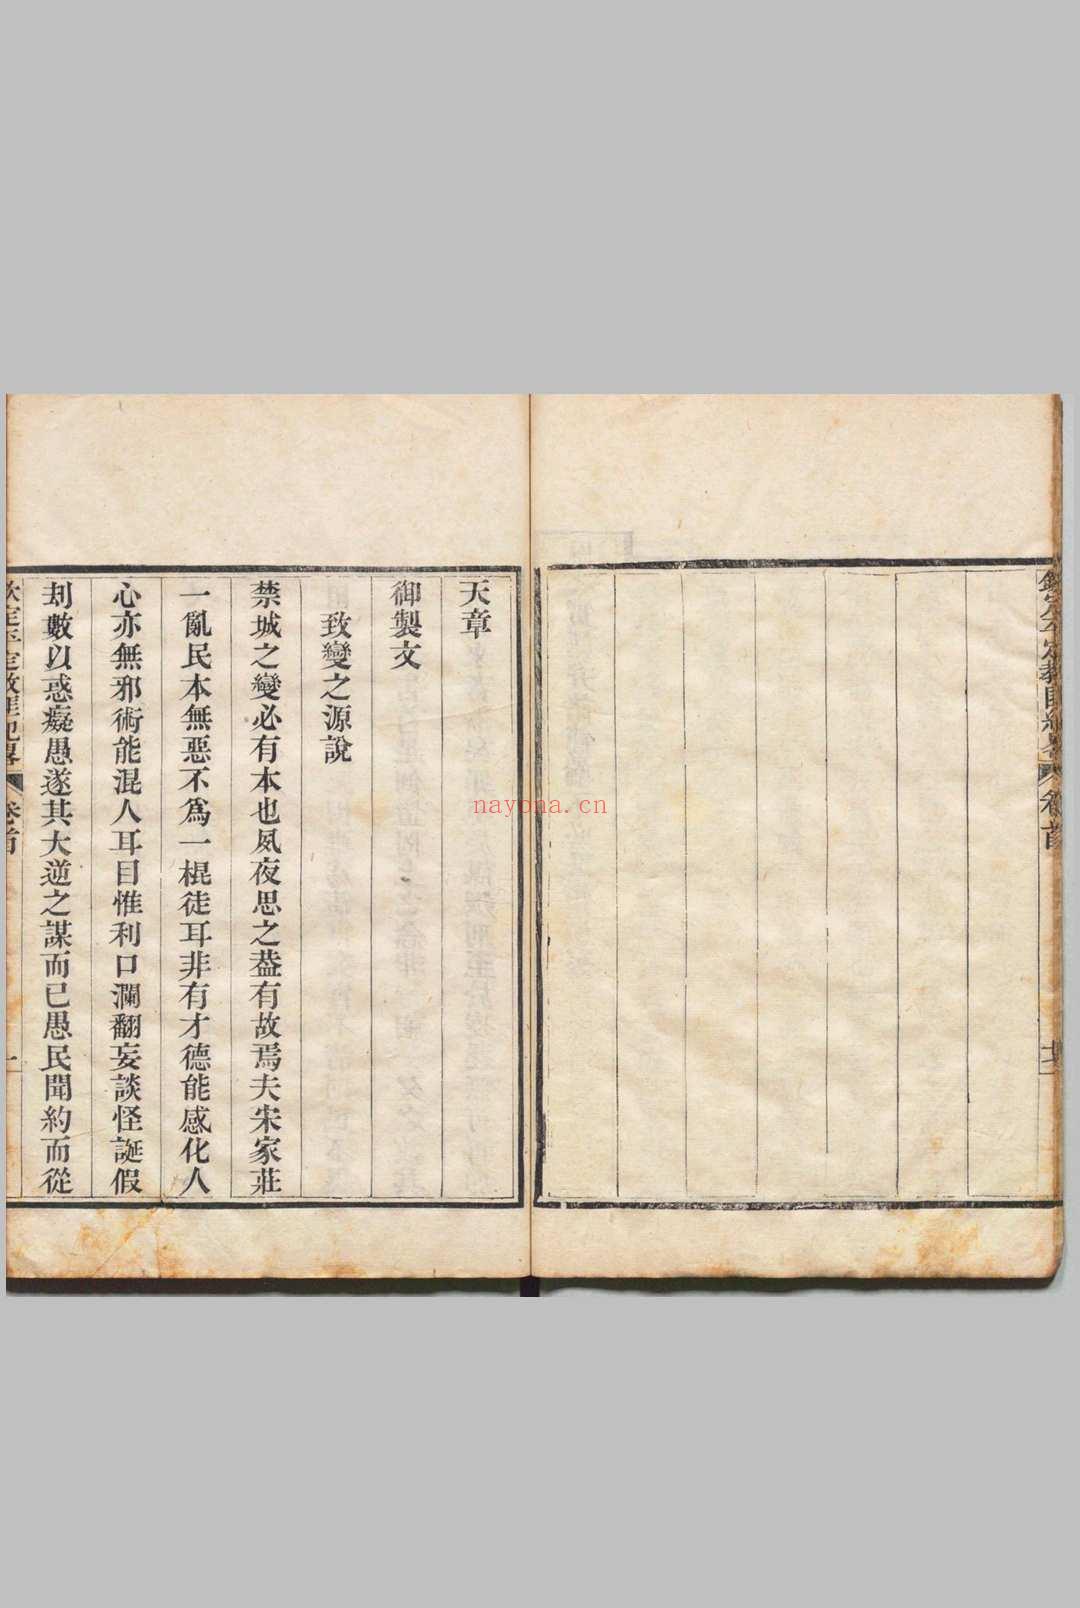 欽定平定教匪紀畧
卷首
天章
御製文
致變之源說
禁城之變必有本也夙夜思之葢有故焉夫宋家莊
一亂民本無惡不爲一棍徒耳非有才德能感化人
心亦無邪術能混人耳目惟利口瀾翻妄談怪誕假
刦數以惑癡愚遂其大逆之謀而已愚民聞約而從
欽定平定教匪紀畧
卷首
一
nayona.cn